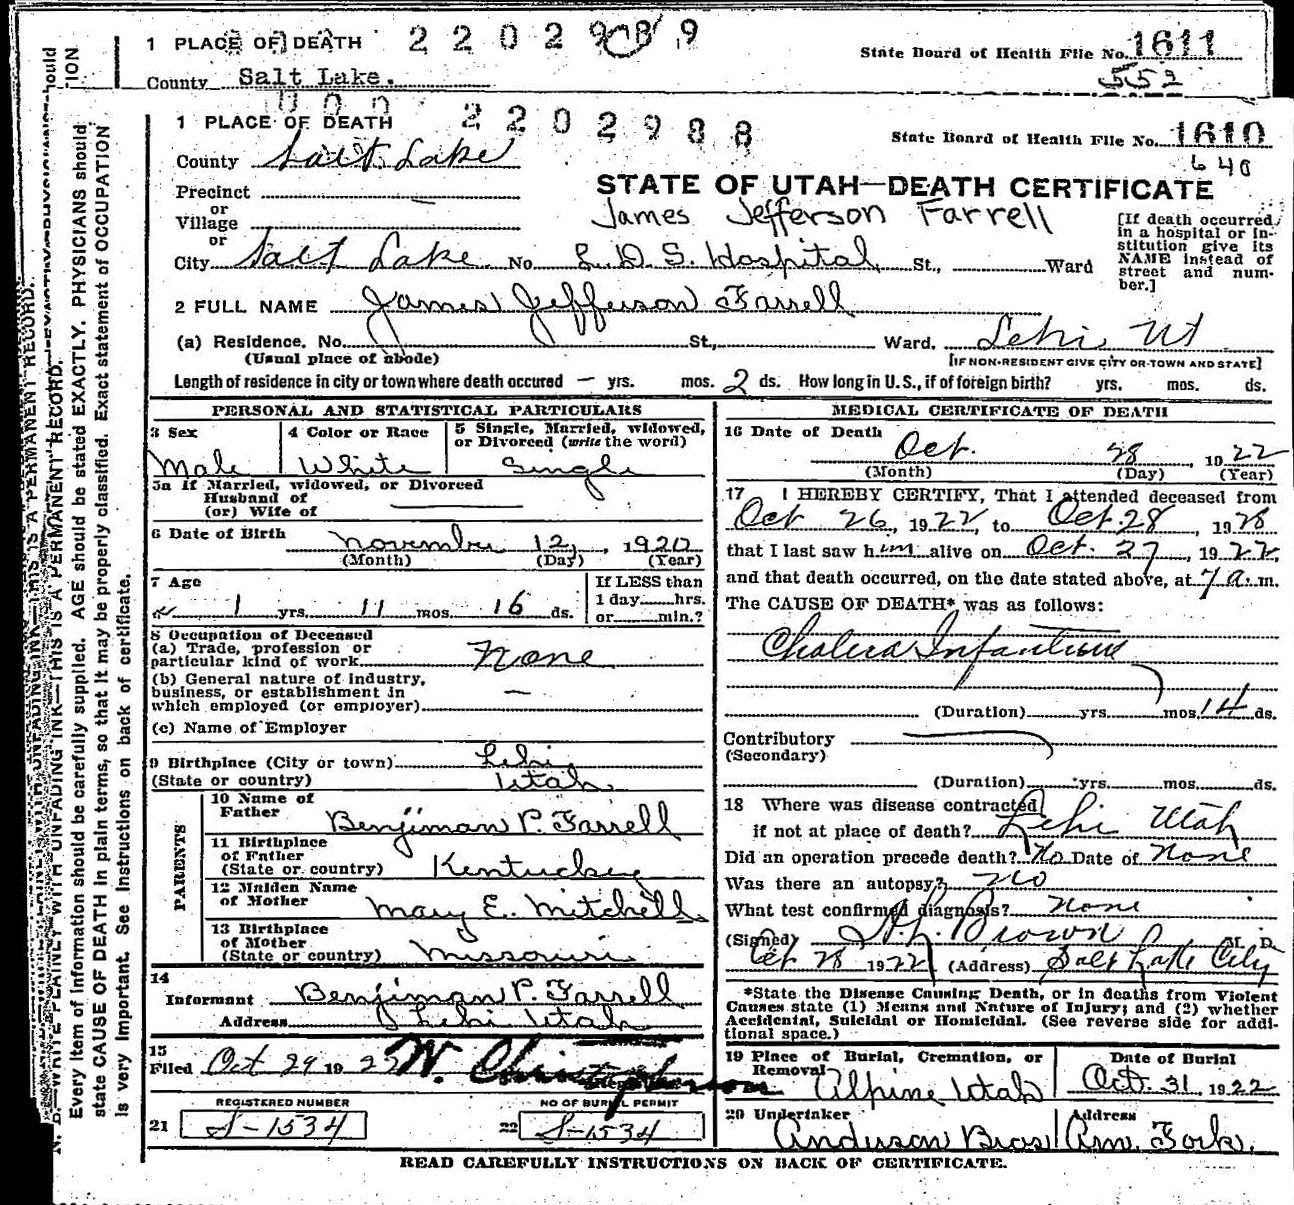 1 PLACE OF DEATH 2 2 0 2 9 8 9
State Board of Health File No. 1611
County Salt Lake.
552
1 PLACE OF DEATH 2 2 0 2 9 8 8
State Board of Health File No. 1610
640
County Salt Lake
STATE OF UTAH—DEATH CERTIFICATE
Precinct
or
Village
James Jefferson Farrell
or
City Salt Lake No L. D. S. Hospital St., Ward
[If death occurred in a hospital or in-
stitution give its
NAME instead of
street and num-
ber.]
2 FULL NAME James Jefferson Farrell
(a) Residence. No. St., Ward. Lehi Ut
(Usual place of abode) [IF NON-RESIDENT GIVE CITY OR TOWN AND STATE]
Length of residence in city or town where death occured — yrs. mos. 2 ds. How long in U. S., if of foreign birth? yrs. mos. ds.
PERSONAL AND STATISTICAL PARTICULARS
3 Sex 4 Color or Race 5 Single, Married, widowed,
or Divorced (write the word)
Male White Single
5a If Married, widowed, or Divorced
Husband of
(or) Wife of
6 Date of Birth November 12, 1920
(Month) (Day) (Year)
7 Age If LESS than
1 yrs. 11 mos. 16 ds. 1 day hrs.
or min.?
8 Occupation of Deceased
(a) Trade, profession or
particular kind of work None
(b) General nature of industry,
business, or establishment in
which employed (or employer) —
(c) Name of Employer
9 Birthplace (City or town) Lehi
(State or country) Utah
PARENTS
10 Name of
Father Benjiman P. Farrell
11 Birthplace
of Father
(State or country) Kentucky
12 Maiden Name
of Mother Mary E. Mitchell
13 Birthplace
of Mother
(State or country) Missouri
14
Informant Benjiman P. Farrell
Address Lehi Utah
15
Filed Oct 29 1922 W. Christopherson
REGISTERED NUMBER NO OF BURIAL PERMIT
21 S-1534 22 S-1534
MEDICAL CERTIFICATE OF DEATH
16 Date of Death Oct. 28, 1922
(Month) (Day) (Year)
17 I HEREBY CERTIFY, That I attended deceased from
Oct 26, 1922, to Oct. 28 1928
that I last saw him alive on Oct. 27, 1922,
and that death occurred, on the date stated above, at 7 a.m.
The CAUSE OF DEATH* was as follows:
Cholera Infantum
(Duration) yrs. mos. 14 ds.
Contributory
(Secondary)
(Duration) yrs. mos. ds.
18 Where was disease contracted
if not at place of death? Lehi Utah
Did an operation precede death? No Date of None
Was there an autopsy? No
What test confirmed diagnosis? none
(Signed) Brown M. D.
Oct 28 1922 (Address) Salt Lake City
*State the Disease Causing Death, or in deaths from Violent
Causes state (1) Means and Nature of Injury; and (2) whether
Accidental, Suicidal or Homicidal. (See reverse side for addi-
tional space.)
19 Place of Burial, Cremation, or
Removal Alpine Utah
Date of Burial
Oct. 31, 1922
20 Undertaker Address
Anderson Bros Am. Fork.
READ CAREFULLY INSTRUCTIONS ON BACK OF CERTIFICATE.
N. B.—WRITE PLAINLY WITH UNFADING INK—THIS IS A PERMANENT RECORD.
Every item of information should be carefully supplied. AGE should be stated EXACTLY. PHYSICIANS should
state CAUSE OF DEATH in plain terms, so that it may be properly classified. Exact statement of OCCUPATION
is very important. See instructions on back of certificate.